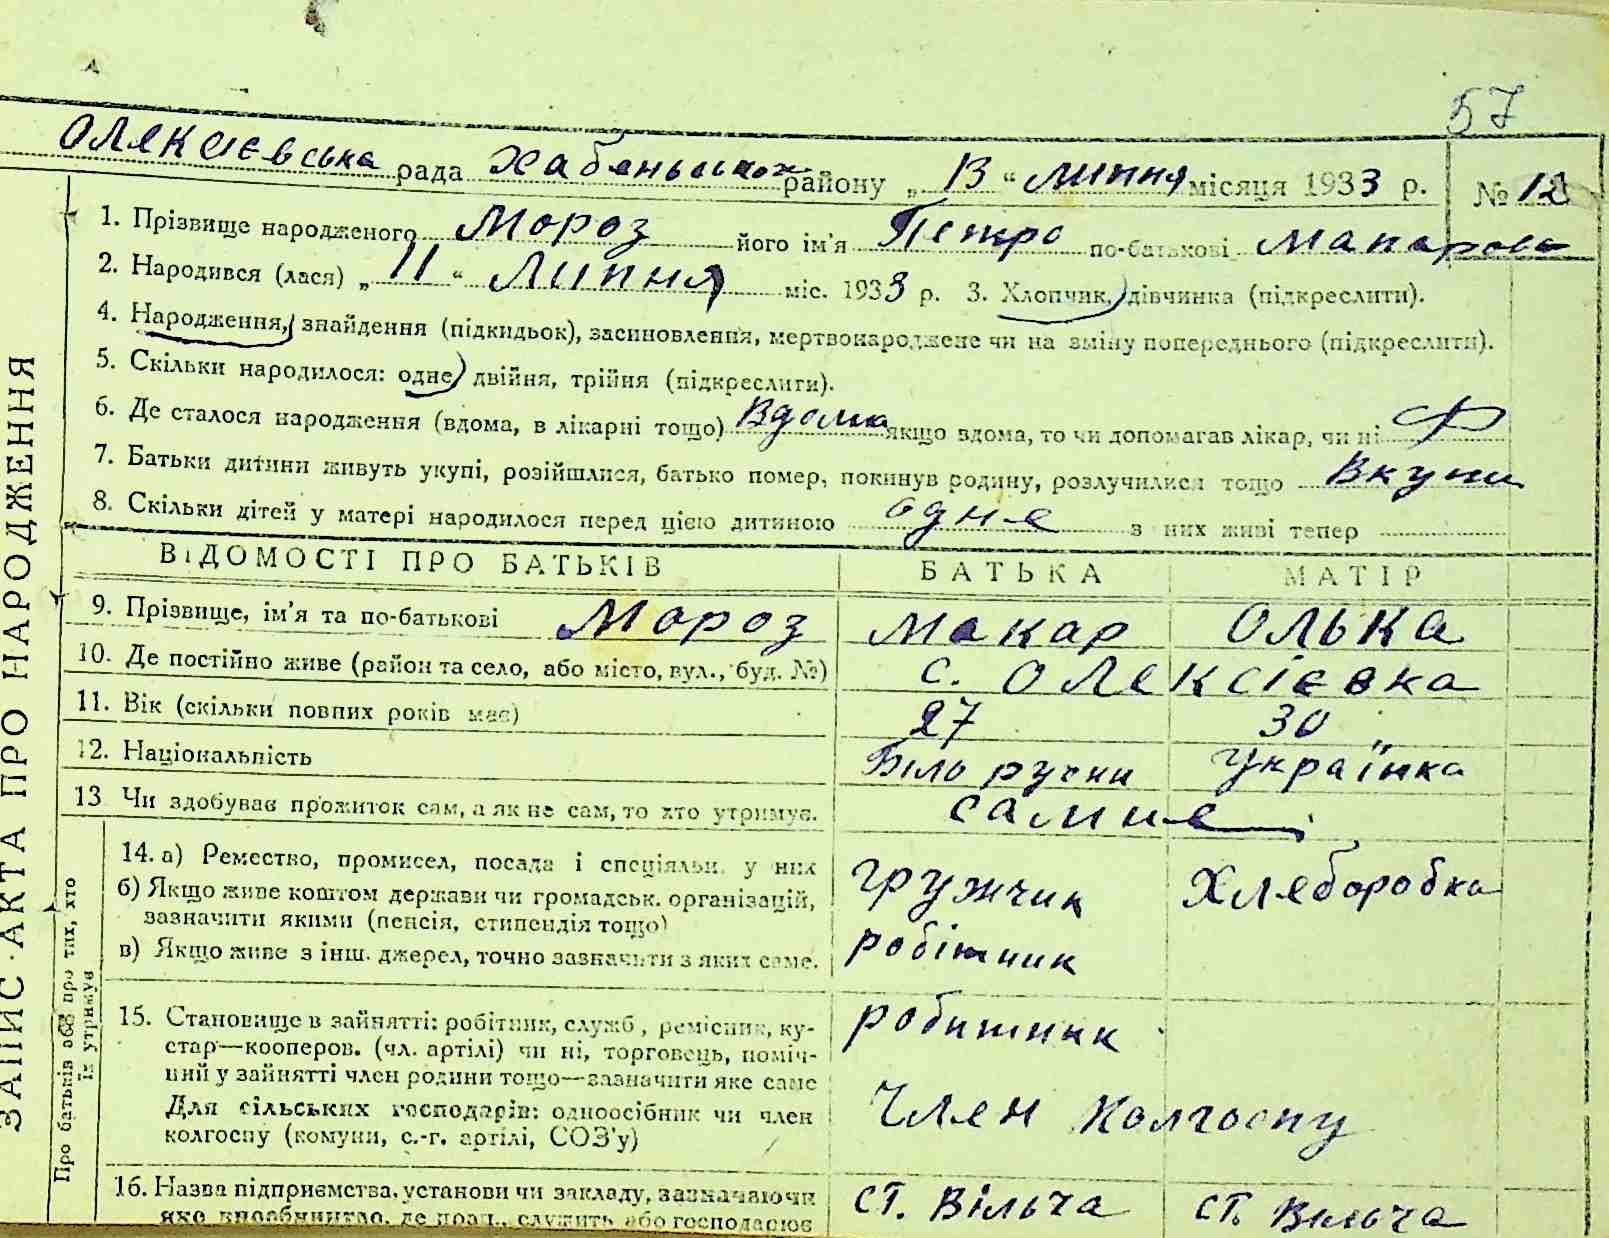 57
Олексієвська рада Хабенського району „ 13 “ липня місяця 1933 р. № 12
1. Прізвище народженого Мороз його ім'я Петро по-батькові Макарова
2. Народився (лася) „ 11 “ Липня міс. 1933 р. 3. Хлопчик, дівчинка (підкреслити).
4. Народження, знайдення (підкидьок), засиновлення, мертвонароджене чи на зміну попереднього (підкреслити).
5. Скільки народилося: одне, двійня, трійня (підкреслити).
6. Де сталося народження (вдома, в лікарні тощо) Вдома якщо вдома, то чи допомагав лікар, чи ні
7. Батьки дитини живуть укупі, розійшлися, батько помер, покинув родину, розлучилися тощо Вкупи
8. Скільки дітей у матері народилося перед цією дитиною одне з них живі тепер
ВІДОМОСТІ ПРО БАТЬКІВ БАТЬКА МАТІР
9. Прізвище, ім'я та по-батькові Мороз Макар Олька
10. Де постійно живе (район та село, або місто, вул., буд. №) с. Олексієвка
11. Вік (скільки повних років має) 27 30
12. Національність Біло ручни Українка
13 Чи здобуває прожиток сам, а як не сам, то хто утримує. самие
14. а) Ремество, промисел, посада і спеціяльн. у них гружчик Хлеборобка
б) Якщо живе коштом держави чи громадськ. організацій,
зазначити якими (пенсія, стипендія тощо)
в) Якщо живе з інш. джерел, точно зазначити з яких саме. робітник
15. Становище в зайнятті: робітник, служб, ремісник, ку- робитник
стар—кооперов. (чл. артілі) чи ні, торговець, поміч-
ний у зайнятті член родини тощо—зазначити яке саме
Для сільських господарів: одноосібник чи член Член Колгоспу
колгоспу (комуни, с.-г. артілі, СОЗ'у)
16. Назва підприємства, установи чи закладу, зазначаючи ст. Вільча ст. Вильча
яке виробництво, де прац., служить або господарює
ЗАПИС АКТА ПРО НАРОДЖЕННЯ
Про батьків або про тих, хто
їх утримує